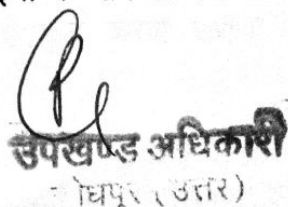 उपखण्ड अधिकारी
ोधपुर (उत्तर)